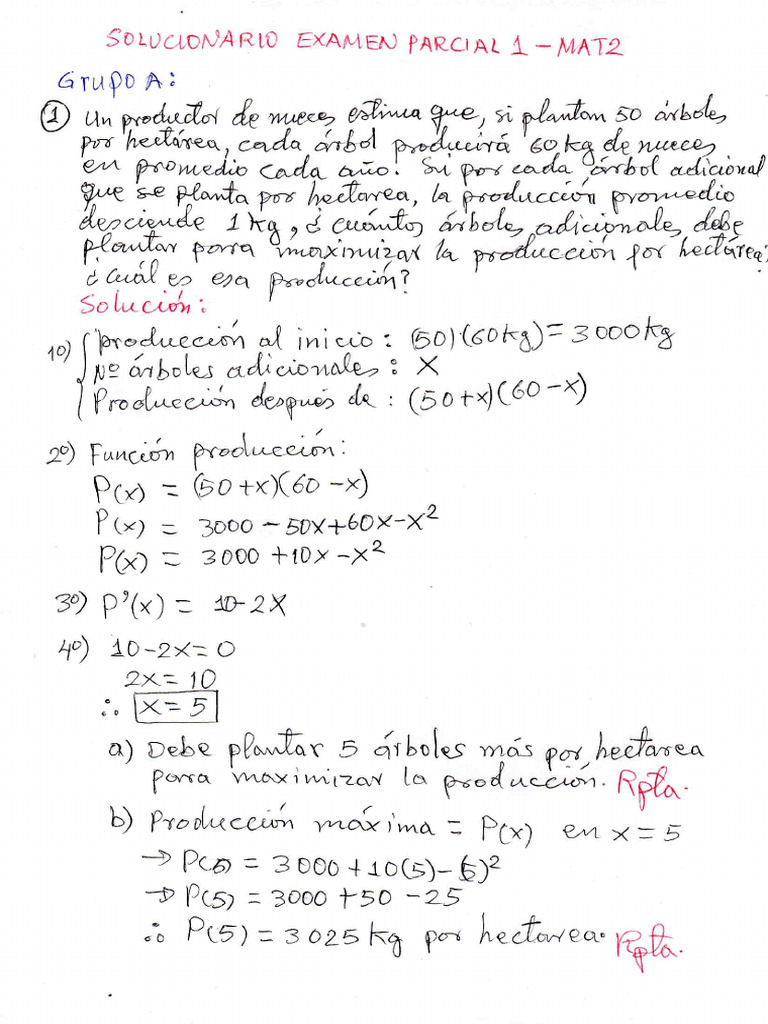 SOLUCIONARIO EXAMEN PARCIAL 1 - MAT2
Grupo A:
① Un productor de nueces estima que, si plantan 50 árboles
por hectárea, cada árbol producirá 60 kg de nueces
en promedio cada año. Si por cada árbol adicional
que se planta por hectarea, la producción promedio
desciende 1 kg, ¿cuántos árboles adicionales debe
plantar para maximizar la producción por hectárea;
¿Cuál es esa producción?
Solución:
1º) Producción al inicio : (50)·(60kg) = 3000kg
Nº árboles adicionales : X
Producción después de : (50+x)(60-x)
2º) Función producción:
P(x) = (50+x)(60-x)
P(x) = 3000 - 50x + 60x - x²
P(x) = 3000 + 10x - x²
3º) P'(x) = 10-2x
4º) 10-2x=0
2x=10
∴ x=5
a) Debe plantar 5 árboles más por hectarea
para maximizar la producción. Rpta.
b) Producción máxima = P(x) en x=5
→ P(5) = 3000 + 10(5) - (5)²
→ P(5) = 3000 + 50 - 25
∴ P(5) = 3025 kg por hectarea. Rpta.